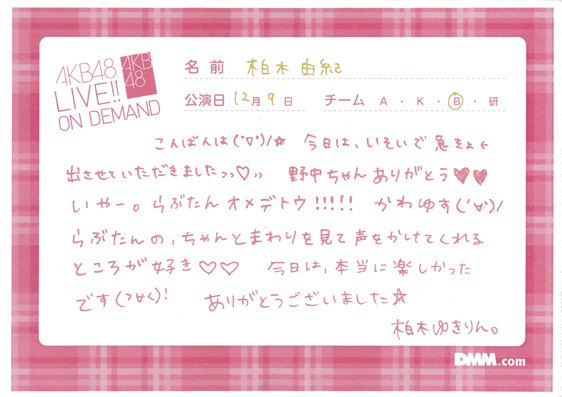 AKB48
LIVE!!
ON DEMAND
AKB
48
名前 柏木由紀
公演日 12月9日 チーム A・K・B・研
こんばんは(°▽°)/☆ 今日は、いそいで急きょ
出させていただきました>>♡>> 野中ちゃんありがとう♥♥
いやー。らぶたんオメデトウ!!!!! かわゆす('∀')/
らぶたんの、ちゃんとまわりを見て声をかけてくれる
ところが好き♡♡ 今日は、本当に楽しかった
です(>∀<)! ありがとうございました☆
柏木ゆきりん。
DMM.com